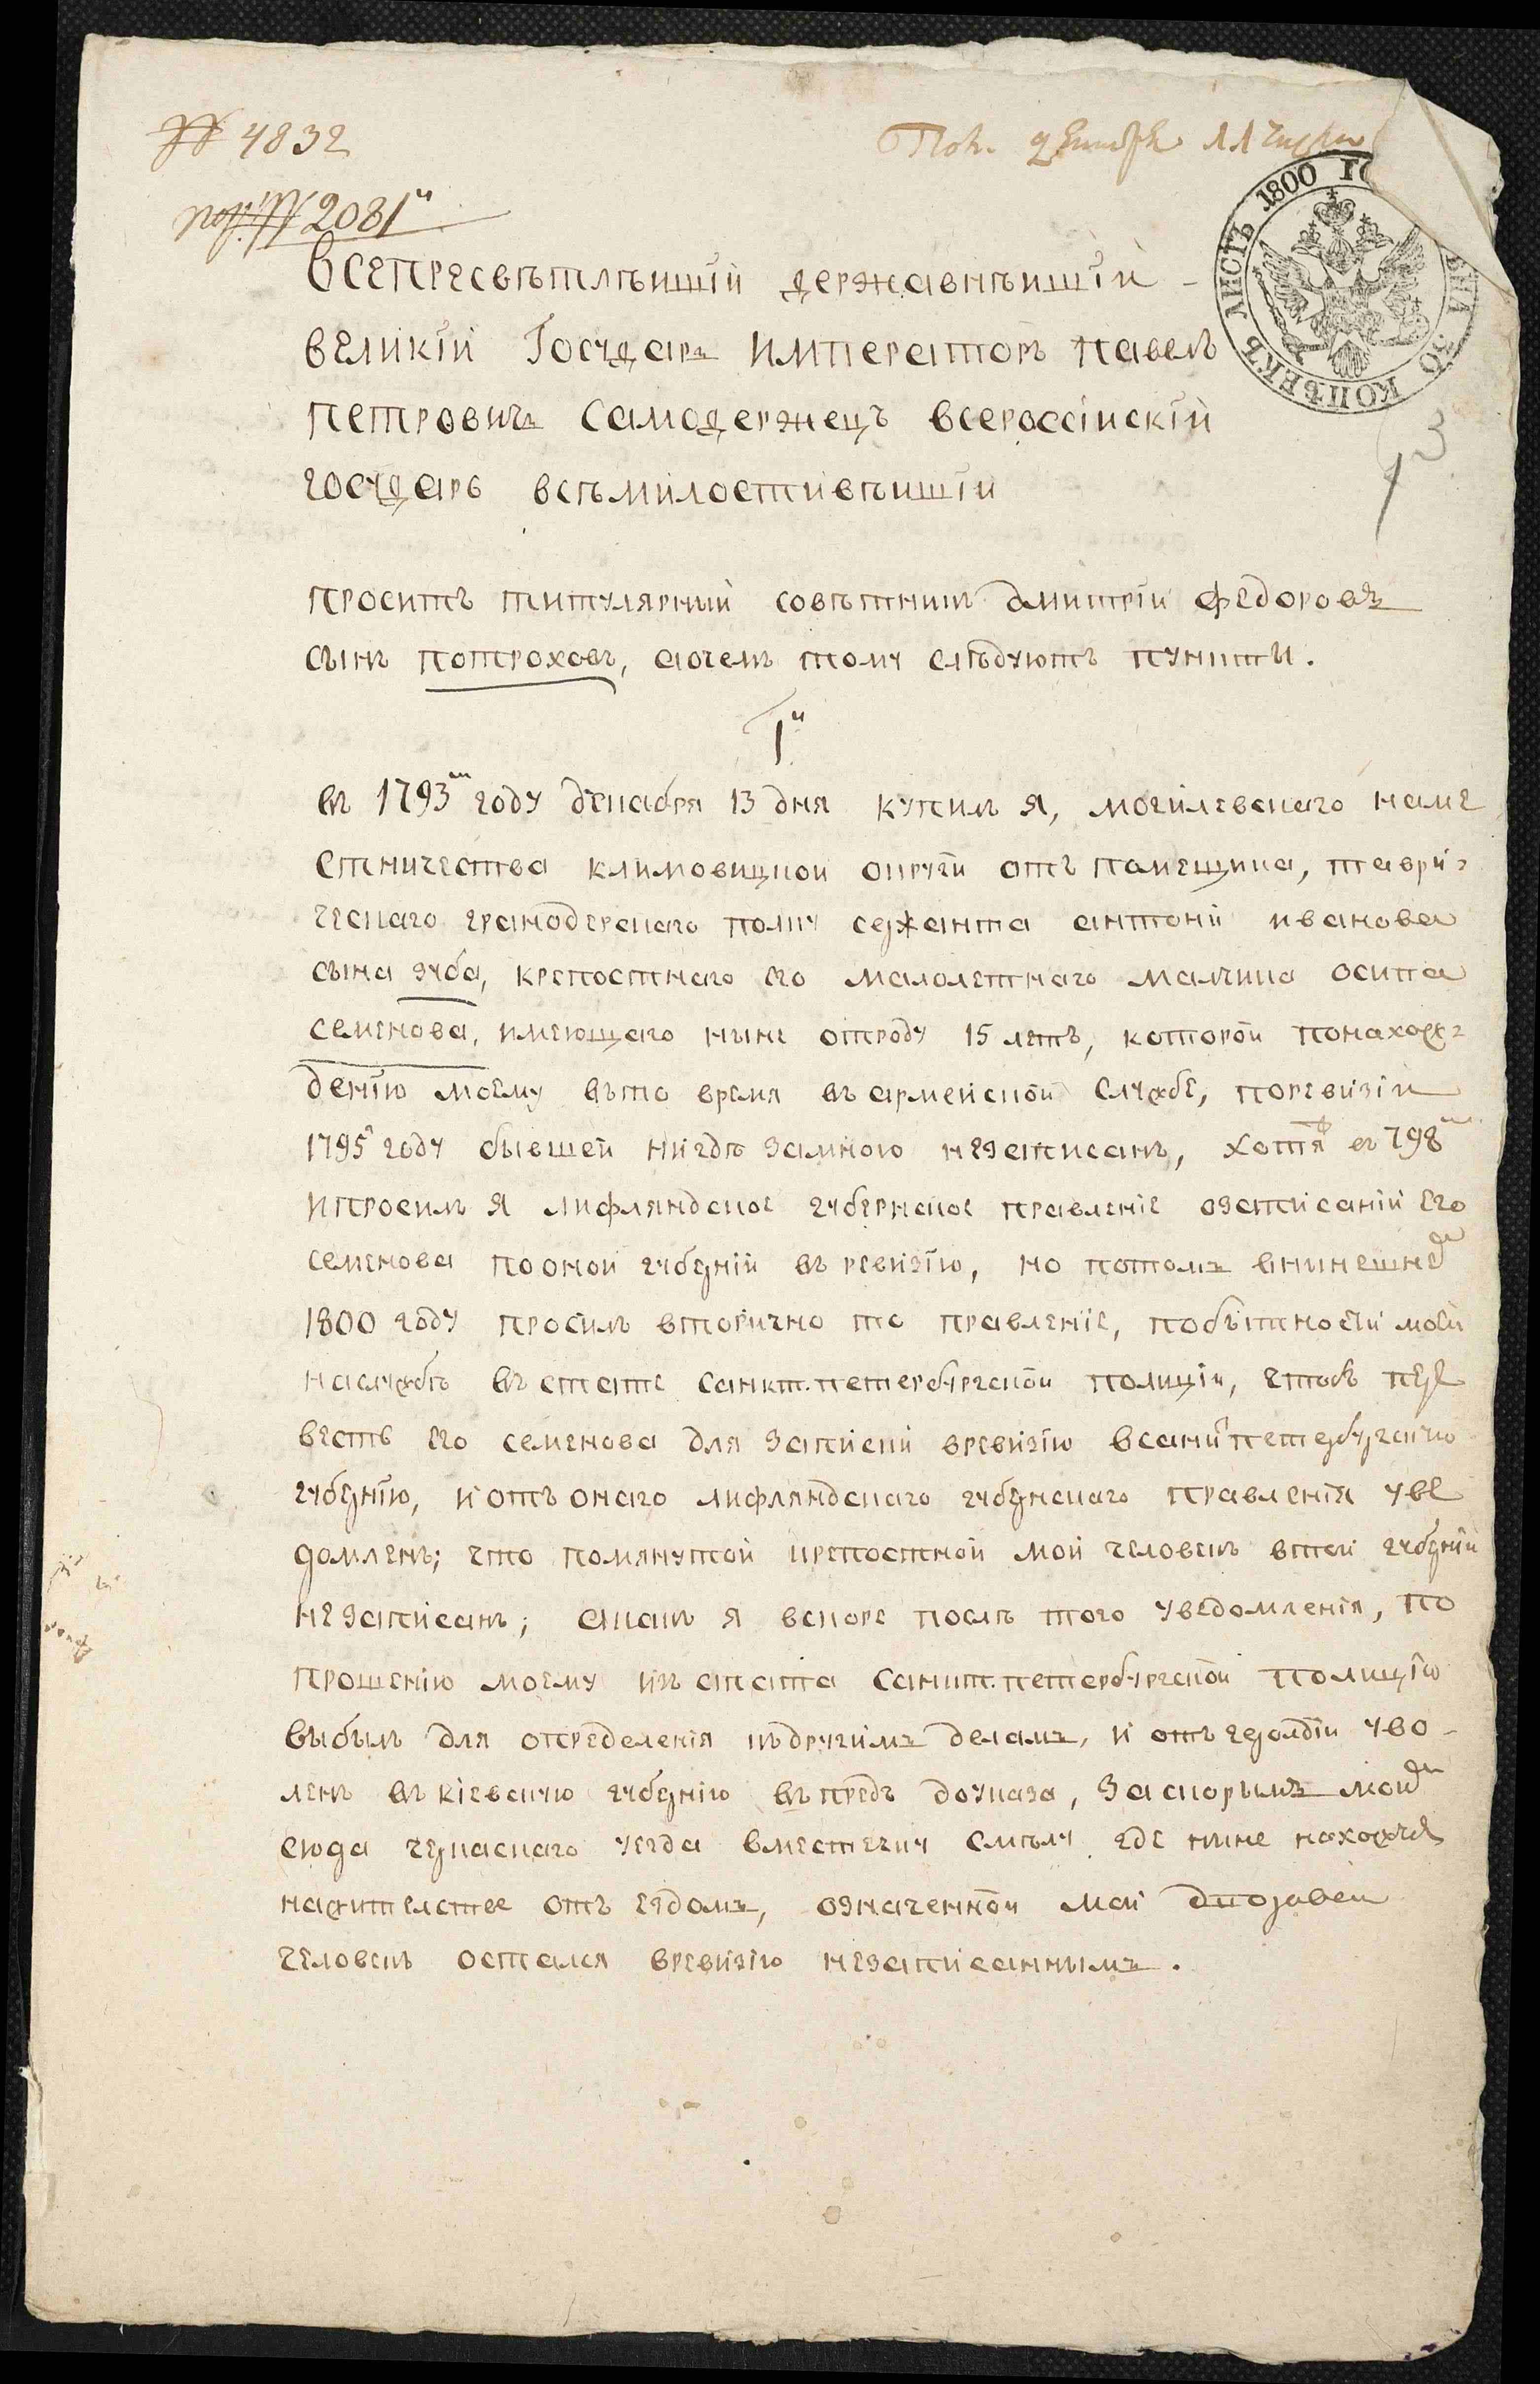 № 4832
Пол. декабря 11 1800
пог: № 2081й
ЛИСТЪ 1800 ГО
КОПѢЕКЪ
Всепресвѣтлѣишїй державнѣишїй
великїй Государь Императоръ павелъ
петровичь Самодержецъ всероссїискїй
государь всѣмилостивѣишїй
3
проситъ титулярный совѣтникъ дмитрїй федоровъ
сынъ потроховъ, аочемъ тому слѣдуютъ пункты.
1й
въ 1793м году декабря 13 дня купилъ я, могилевскаго наме
стничества климовицкой округи отъ помещика, таври-
ческаго гранодерскаго полку сержанта антонй иванова
сына зуба, крепостнаго его малолетнаго малчика осипа
семенова, имеющаго ныне отроду 15 летъ, которой понахож-
денїю моему въто время въ армейской службе, поревизїи
1795 году бывшей нигдѣ замною незаписанъ, хотя въ 798м
ипросилъ я лифляндское губернское правленїе озаписанїи его
семенова пооной губернїи въ ревизїю, но потомъ внинешнем
1800 году просилъ вторично то правленїе, побытности моей
наслужбѣ въ статѣ санкт.петербургской полицїи, чтобъ пере
весть его семенова для записки вревизїю всанктпетербургскую
губернїю, и отъ онаго лифляндскаго губернскаго правленїя уве
домленъ; что помянутой крепостной мой человекъ втой губернїи
незаписанъ; акакъ я вскоре послѣ того уведомленїя, по
прошенїю моему изъ стата санкт.петербургской полицїи
выбылъ для определенїя къдругимъ деламъ, и отъ герольдїи уво-
ленъ въ кїевскую губернїю въпредь доуказа, заскорымъ моим
сюда черкаскаго уезда вместечку смѣлу где ныне нахожуся
нажителстве отъ ездомъ, означенной мой дворовой
человекъ остался вревизїю незаписаннымъ.